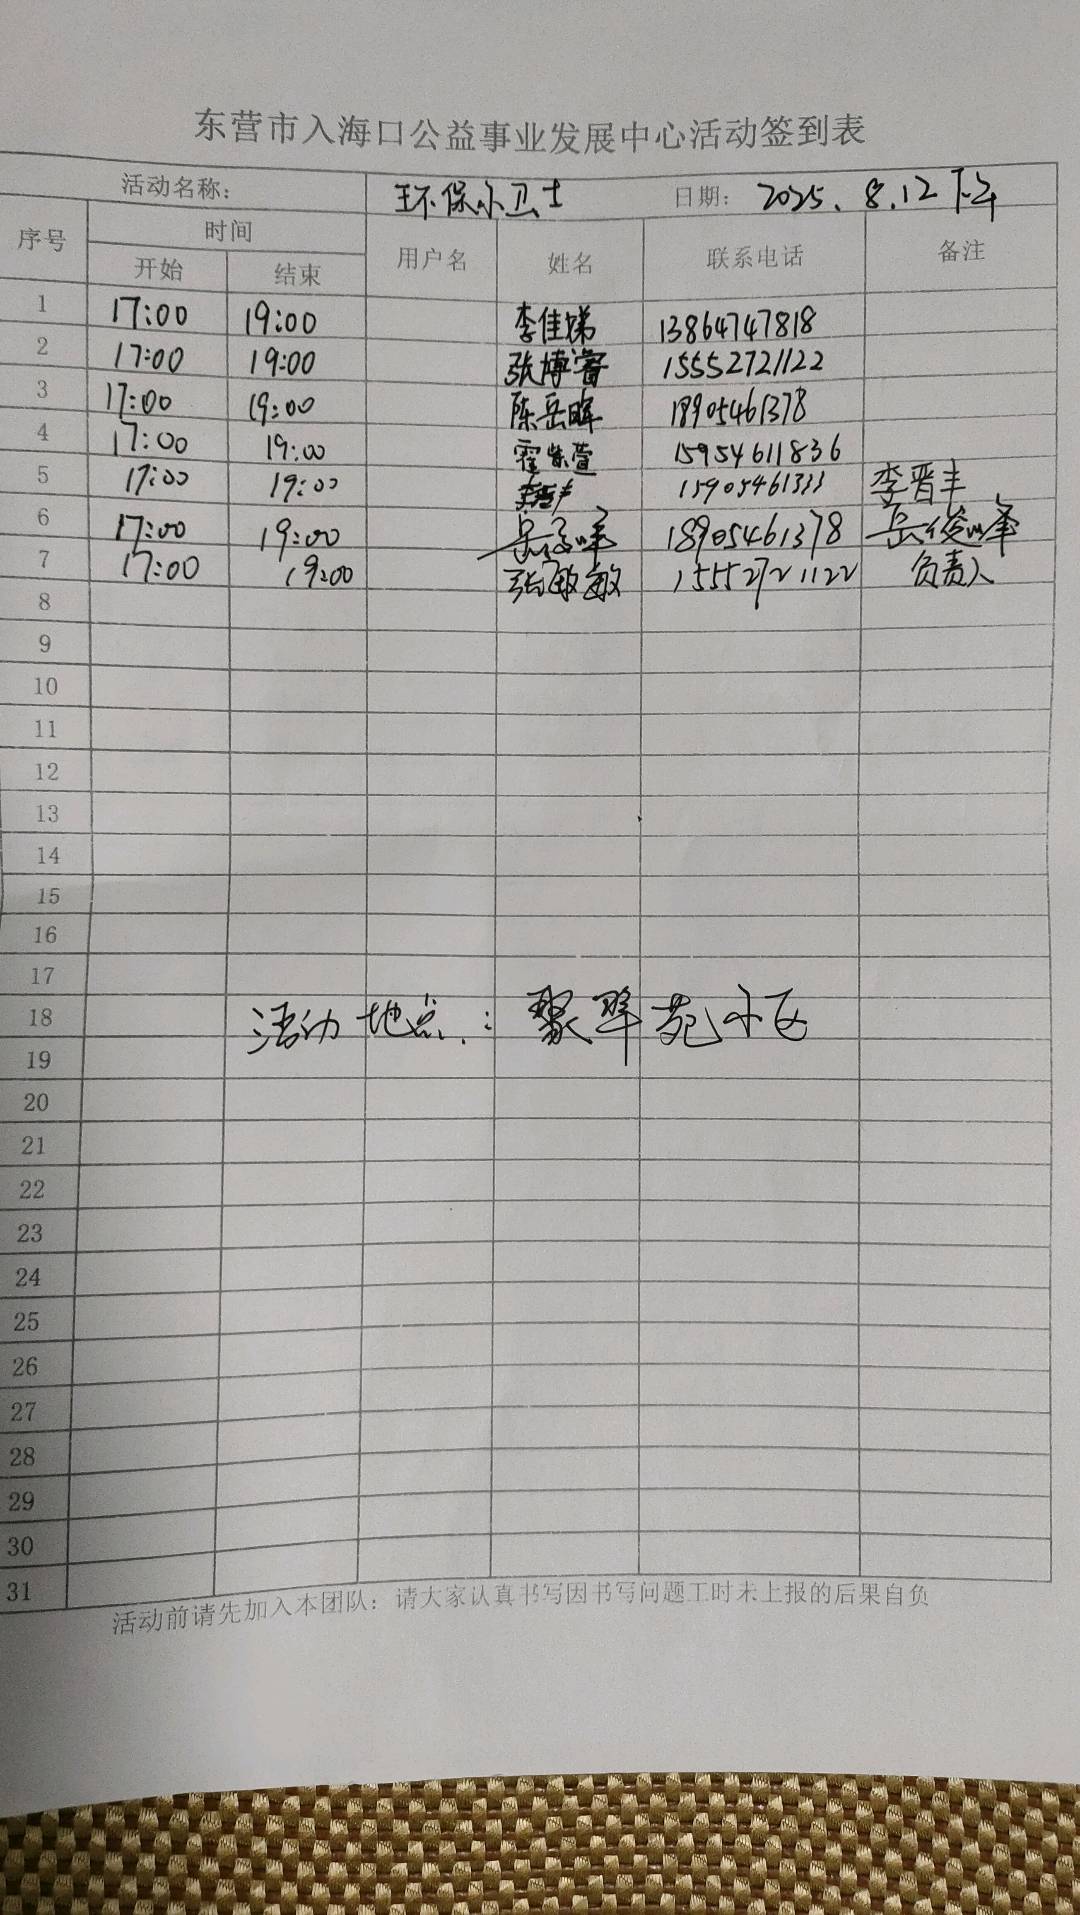 东营市入海口公益事业发展中心活动签到表
活动名称: 环保小卫士 日期: 2025.8.12下午
序号 时间 用户名 姓名 联系电话 备注
开始 结束
1 17:00 19:00 李佳娣 13864747818
2 17:00 19:00 张博睿 15552721122
3 17:00 19:00 陈岳晖 18905461378
4 17:00 19:00 霍紫萱 15954611836
5 17:00 19:00 15905461333 李晋丰
6 17:00 19:00 18905461378 岳俊峰
7 17:00 19:00 张敏敏 15552721122 负责人
8
9
10
11
12
13
14
15
16
17
18 活动地点: 聚翠苑小区
19
20
21
22
23
24
25
26
27
28
29
30
31
活动前请先加入本团队: 请大家认真书写因书写问题工时未上报的后果自负